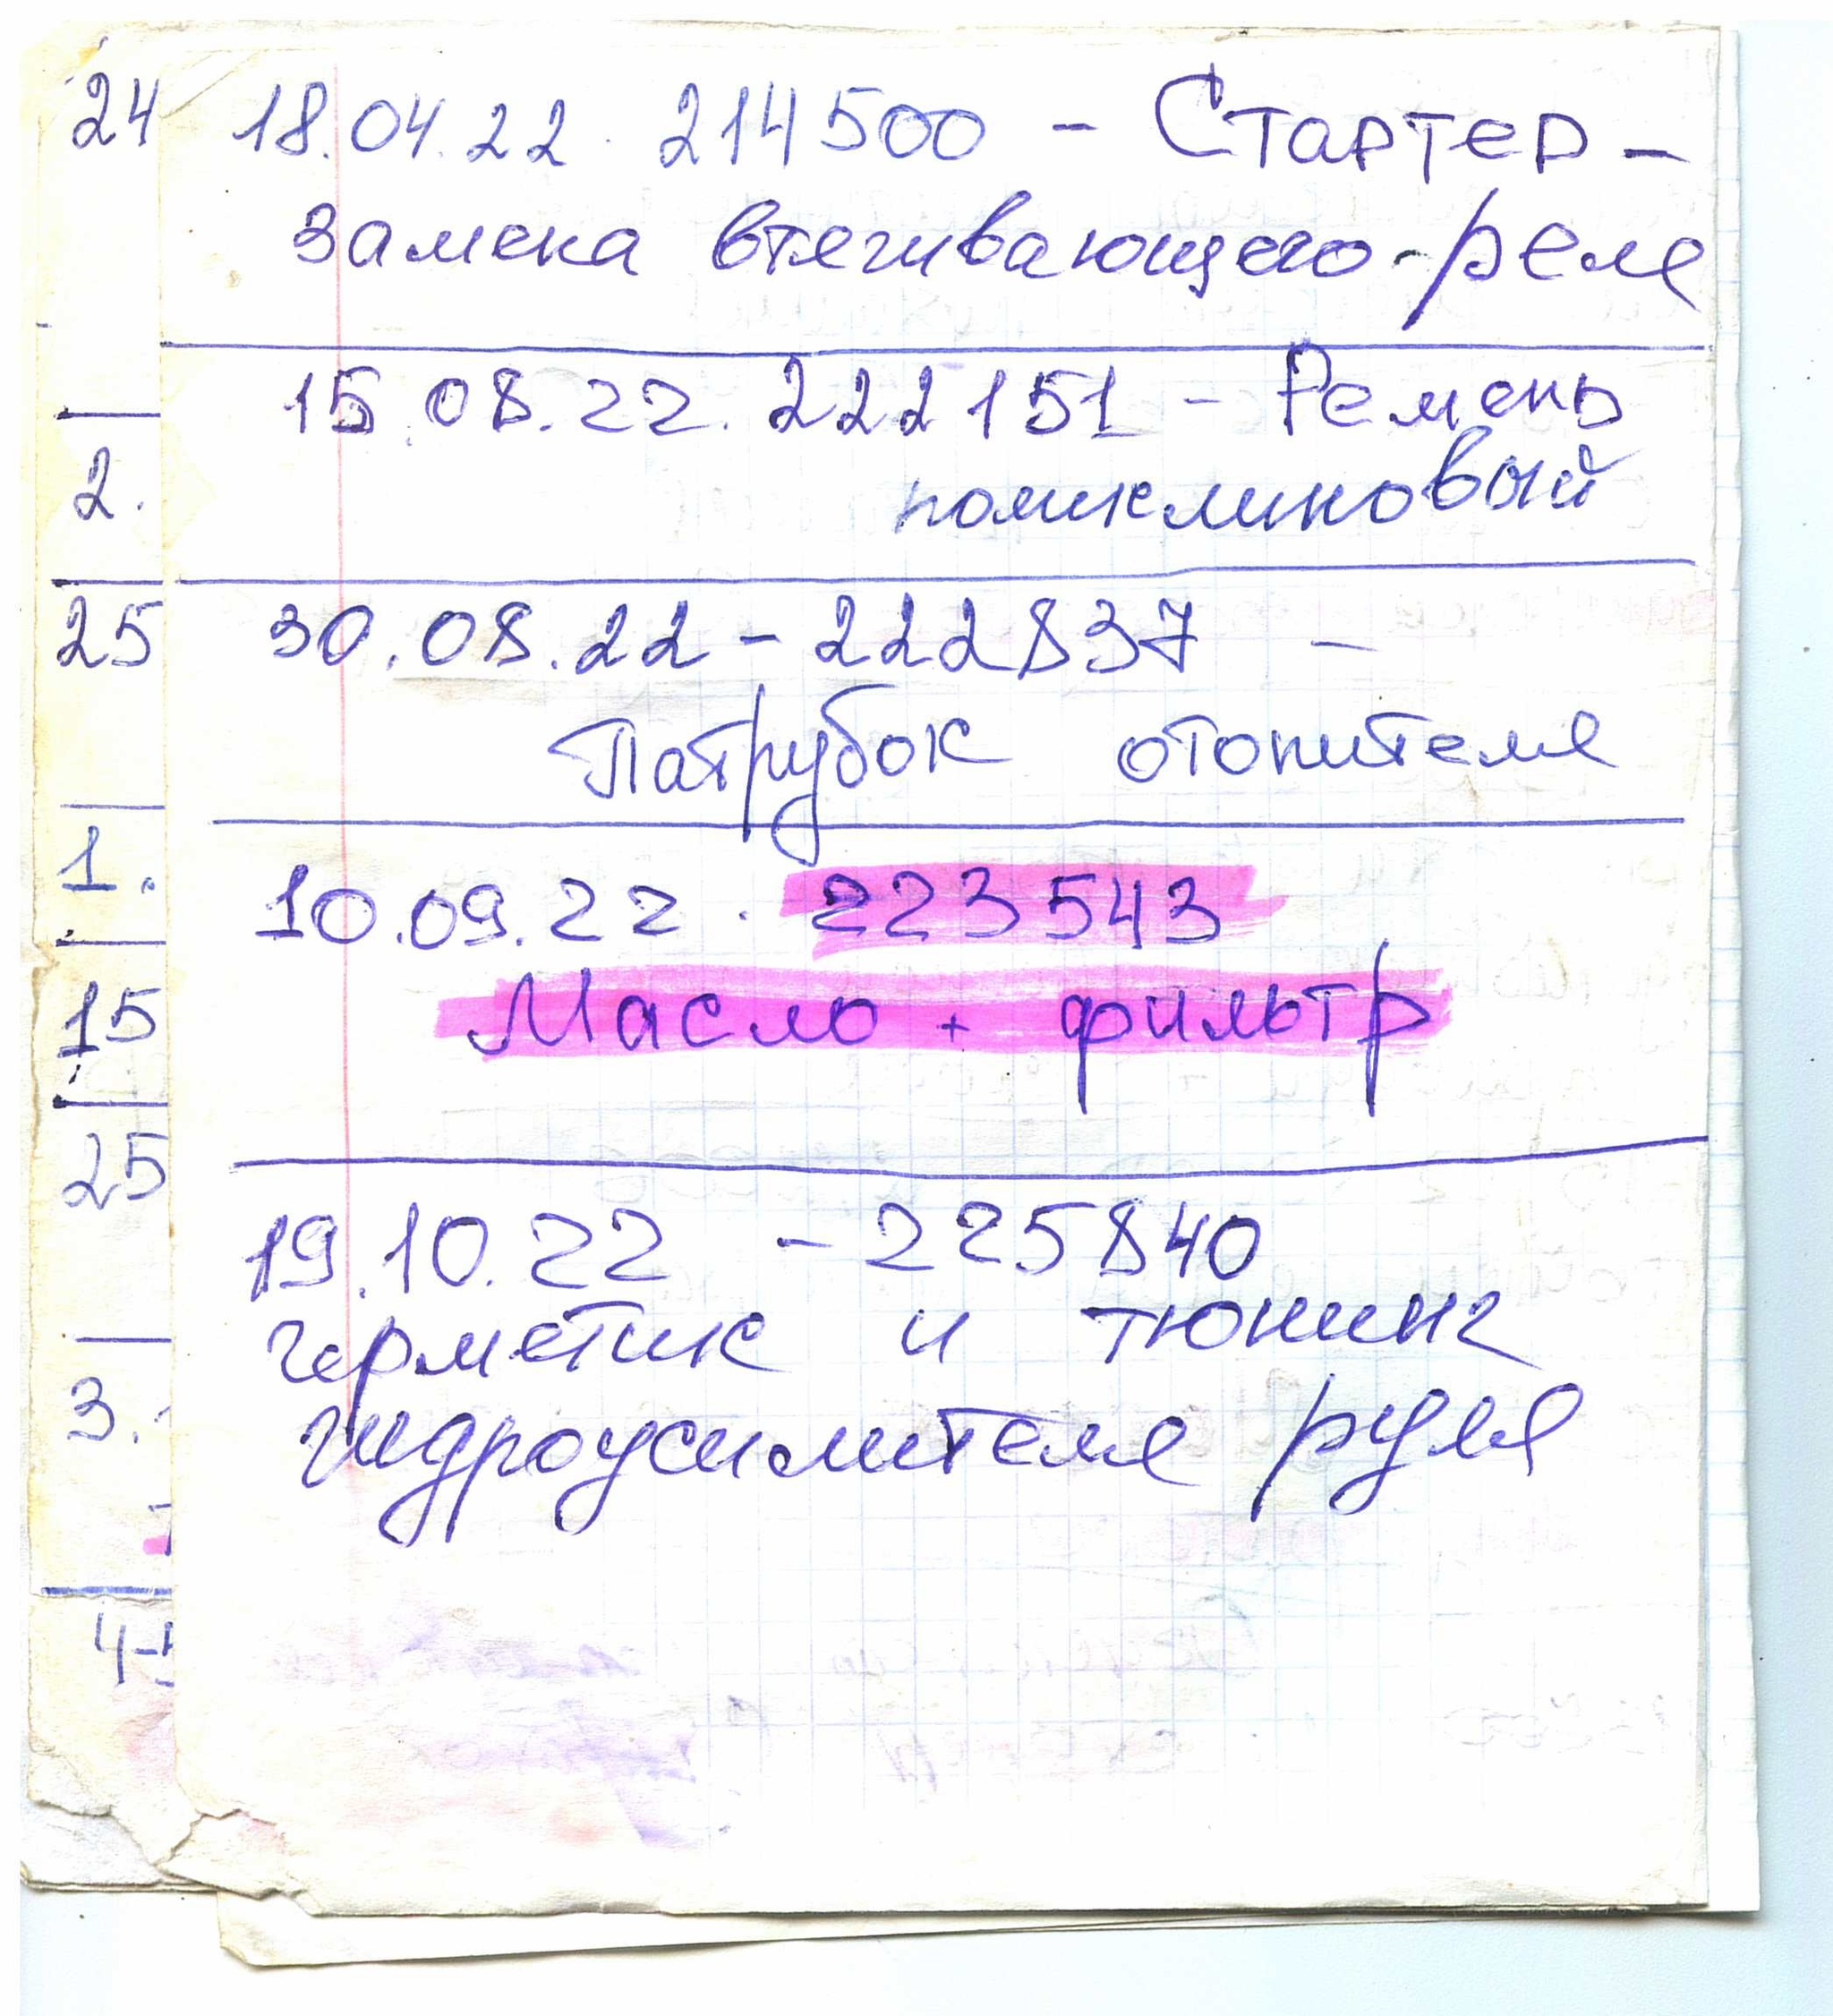 24
18.04.22. 214500 - Стартер -
замена втягивающего-реле
15.08.22. 222151 - Ремень
2.
поликлиновый
25
30.08.22 - 222837 -
Патрубок отопителя
1.
10.09.22. 223543
Масло + фильтр
15
25
19.10.22 - 225840
герметик и тюнинг
3.
гидроусилителя руля